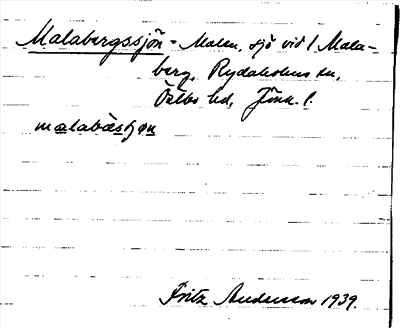 Malabergssjön = Malen, sjö vid l. Mala-
berg, Rydaholms sn,
Östbo hd, Jönk. l.
malabæsʃøn
Fritz Andersson 1939.